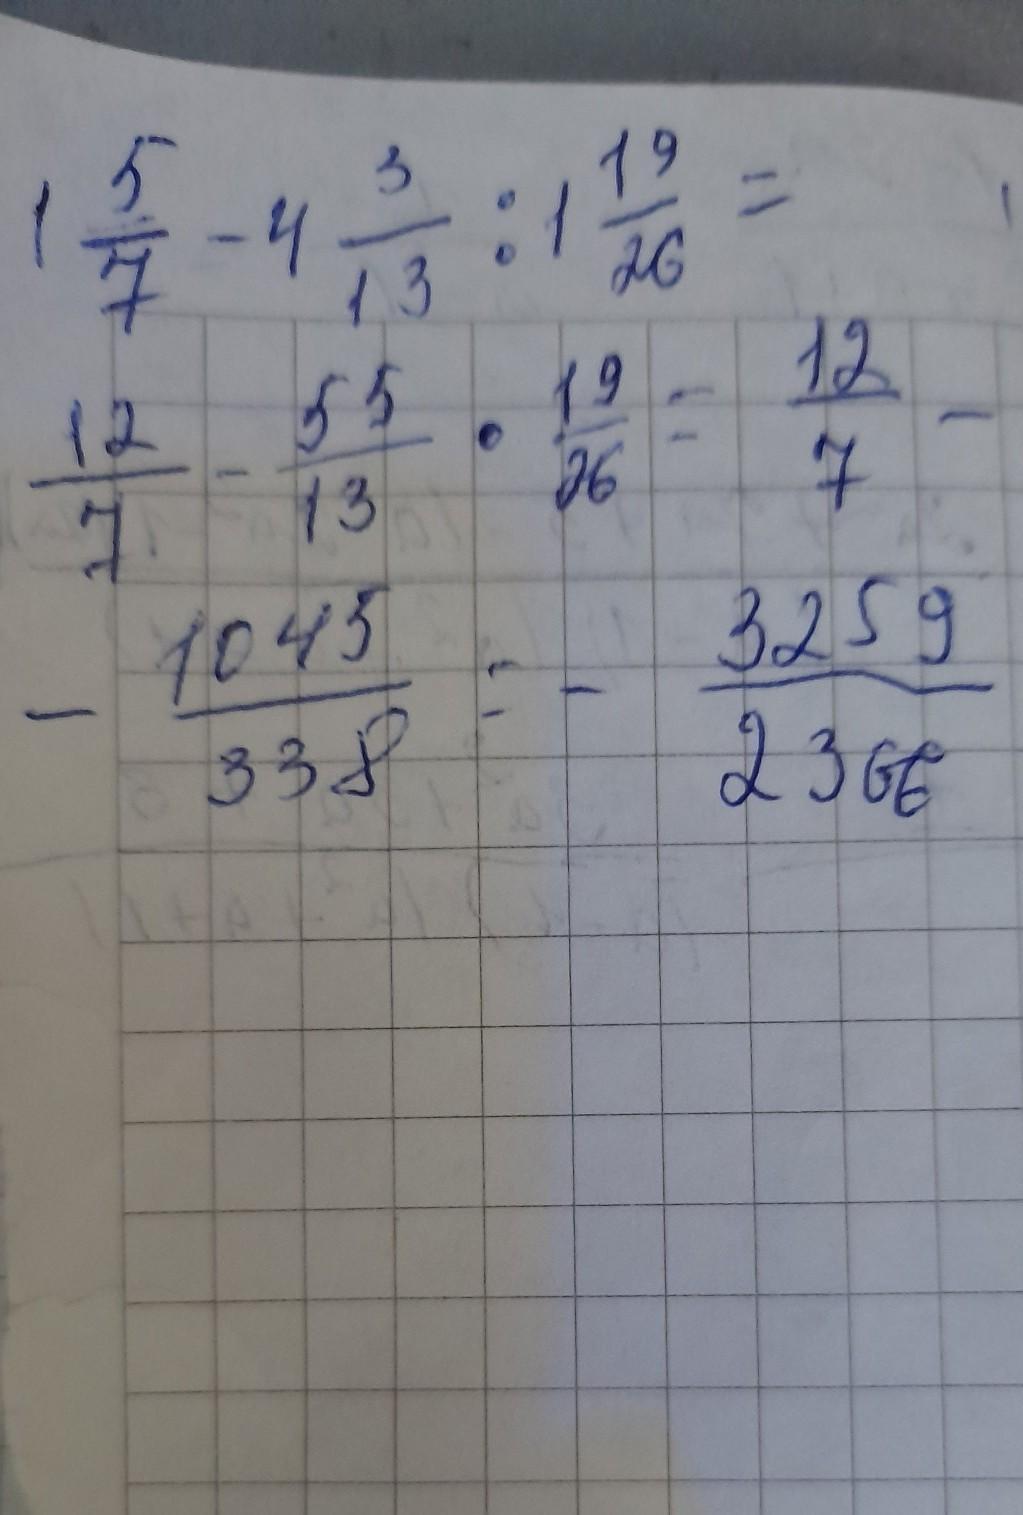 1 5/7 - 4 3/13 : 1 19/26 =
12/7 - 55/13 • 19/26 = 12/7 -
- 1045/338 = - 3259/2366